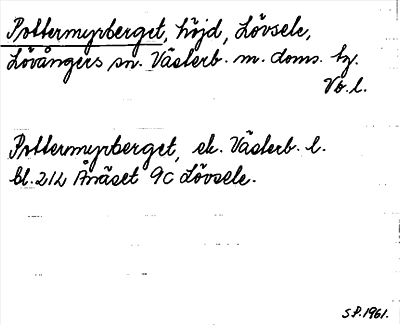 Pottermyrberget, höjd, Lövsele,
Lövångers sn. Västerb. m. doms. tg.
Vb. l.
Pottermyrberget, ek. Västerb. l.
bl. 21L Ånäset 9c Lövsele.
S.P. 1961.